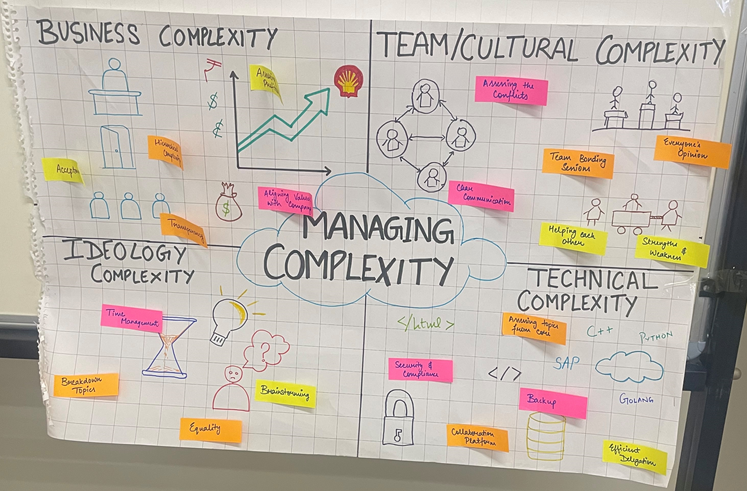 BUSINESS COMPLEXITY
₹
$
¢
Hierarchical
Aligning Values
with Company
Transparency
TEAM/CULTURAL COMPLEXITY
Assessing the
Conflicts
Everyone's
Opinion
Team Bonding
Sessions
Clear
Communication
Helping each
other
Strengths &
Weakness
MANAGING
COMPLEXITY
$
IDEOLOGY
COMPLEXITY
Time
Management
?
Breakdown
Topics
Brainstorming
Equality
TECHNICAL
COMPLEXITY
</html>
Assessing topic
from core
C++
PYTHON
Security &
Compliance
</>
SAP
Backup
GOLANG
Collaboration
Platform
Efficient
Delegation